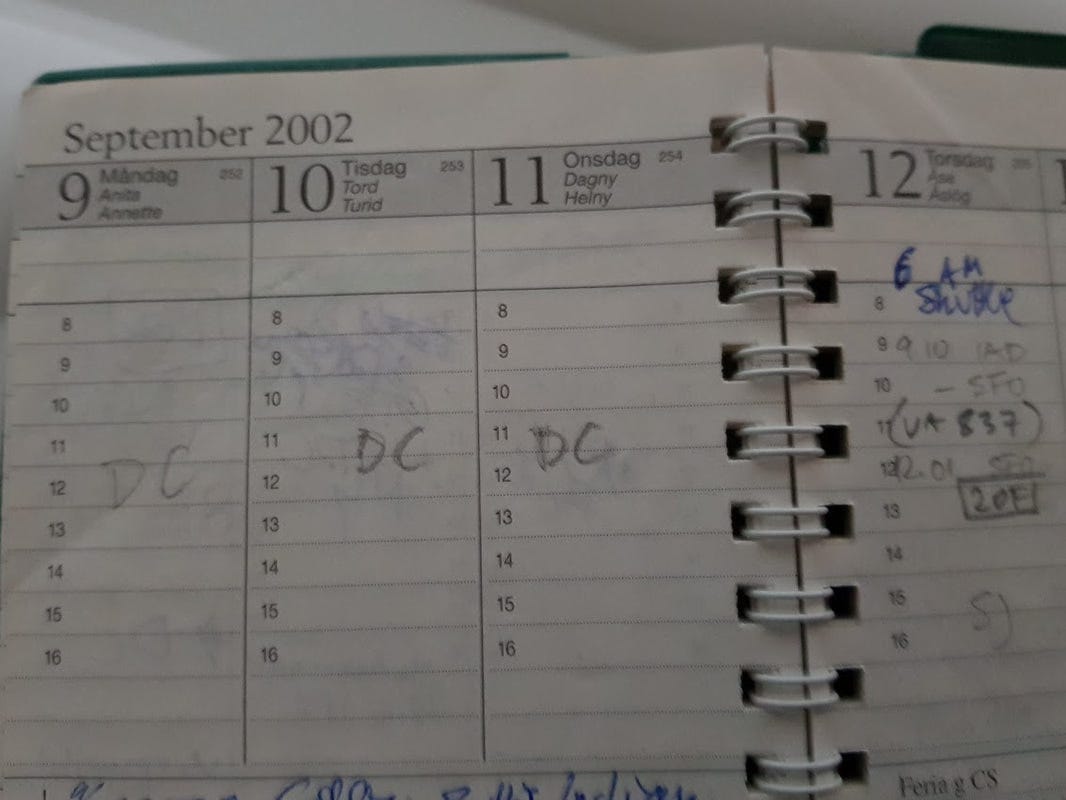 September 2002
9 Måndag 252
Anita
Annette
10 Tisdag 253
Tord
Turid
11 Onsdag 254
Dagny
Helny
12 Torsdag 255
Åsa
Åslög
8
9
10
11
DC
12
13
14
15
16
8
9
10
11 DC
12
13
14
15
16
8
9
10
11 DC
12
13
14
15
16
6 AM
8 Shuttle
9 9 10 IAD
10 - SFO
11 (UA 837)
12 12.01 SFO
20E
13
14
15
SJ
16
Feria g CS